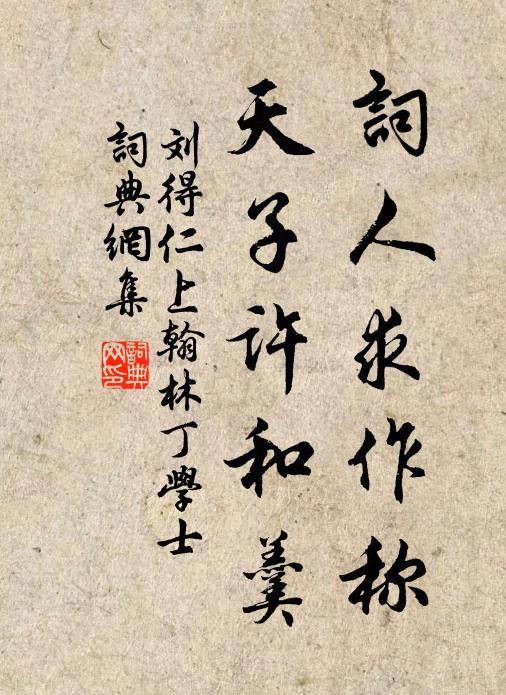 詞人求作称
天子許和羹
刘得仁上翰林丁學士
詞典網集
詞典网印